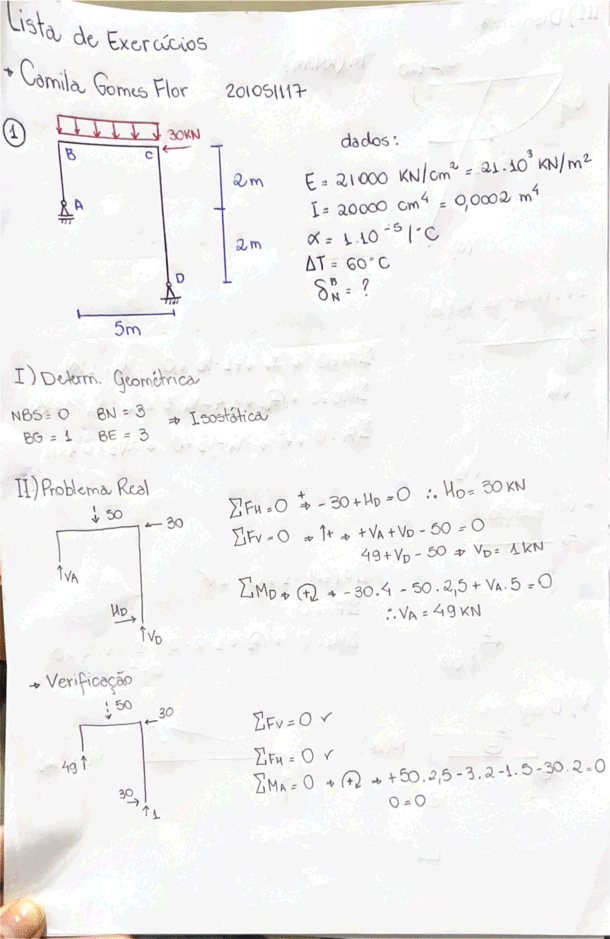 Lista de Exercícios
→ Camila Gomes Flor 201051117
①
30KN
B C
A
D
2m
2m
5m
dados:
E = 21000 KN/cm² = 21.10³ KN/m²
I = 20000 cm⁴ = 0,0002 m⁴
α = 1.10⁻⁵/°C
ΔT = 60°C
δ_N^B = ?
I) Determ. Geométrica
NBS = 0 BN = 3 ⇒ Isostática
BG = 1 BE = 3
II) Problema Real
↓ 50
← 30
↑VA
HD →
↑VD
∑FH=0 ±→ -30+HD=0 ∴ HD=30KN
∑FV=0 → ↑+ → +VA+VD-50=0
49+VD-50 → VD=1KN
∑MD → (+) → -30.4 - 50.2,5 + VA.5=0
∴VA=49KN
→ Verificação
↓ 50
← 30
49↑
30→
↑1
∑FV=0 ✓
∑FH=0 ✓
∑MA=0 → (+) → +50.2,5-3.2-1.5-30.2=0
0=0